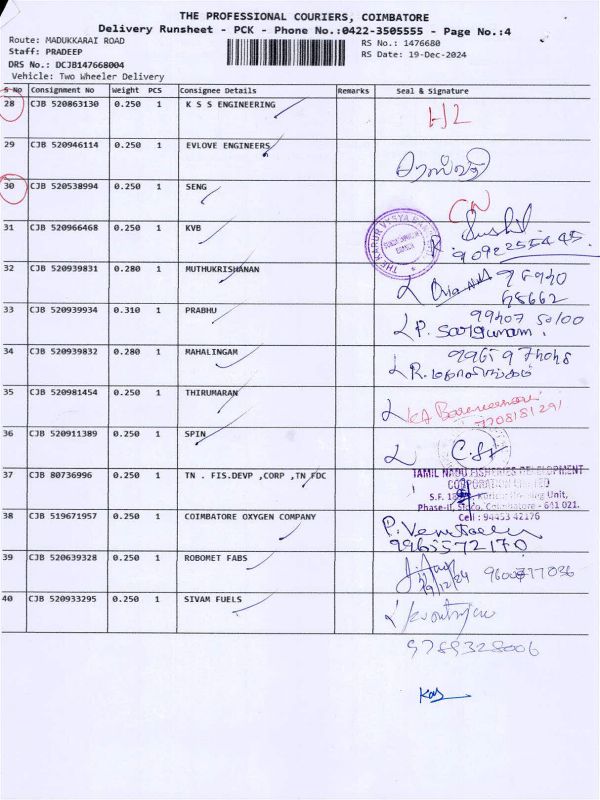 THE PROFESSIONAL COURIERS, COIMBATORE
Delivery Runsheet - PCK - Phone No.:0422-3505555 - Page No.:4
Route: MADUKKARAI ROAD RS No.: 1476680
Staff: PRADEEP RS Date: 19-Dec-2024
DRS No.: DCJB147668004
Vehicle: Two Wheeler Delivery
S No Consignment No Weight PCS Consignee Details Remarks Seal & Signature
28 CJB 520863130 0.250 1 K S S ENGINEERING
29 CJB 520946114 0.250 1 EVLOVE ENGINEERS
30 CJB 520538994 0.250 1 SENG
31 CJB 520966468 0.250 1 KVB
32 CJB 520939831 0.280 1 MUTHUKRISHANAN
33 CJB 520939934 0.310 1 PRABHU
99407 50100
P.
34 CJB 520939832 0.280 1 MAHALINGAM
R. மகாலிங்கம்
35 CJB 520981454 0.250 1 THIRUMARAN
7708181291
36 CJB 520911389 0.250 1 SPIN
37 CJB 80736996 0.250 1 TN . FIS.DEVP ,CORP ,TN FDC
TAMIL NADU FISHERIES DEVELOPMENT
CORPORATION LIMITED
Unit,
Phase-II, Sidco, Coimbatore - 641 021.
Cell : 94453 42176
38 CJB 519671957 0.250 1 COIMBATORE OXYGEN COMPANY
9965572170
39 CJB 520639328 0.250 1 ROBOMET FABS
19/12/24
40 CJB 520933295 0.250 1 SIVAM FUELS
9789328006